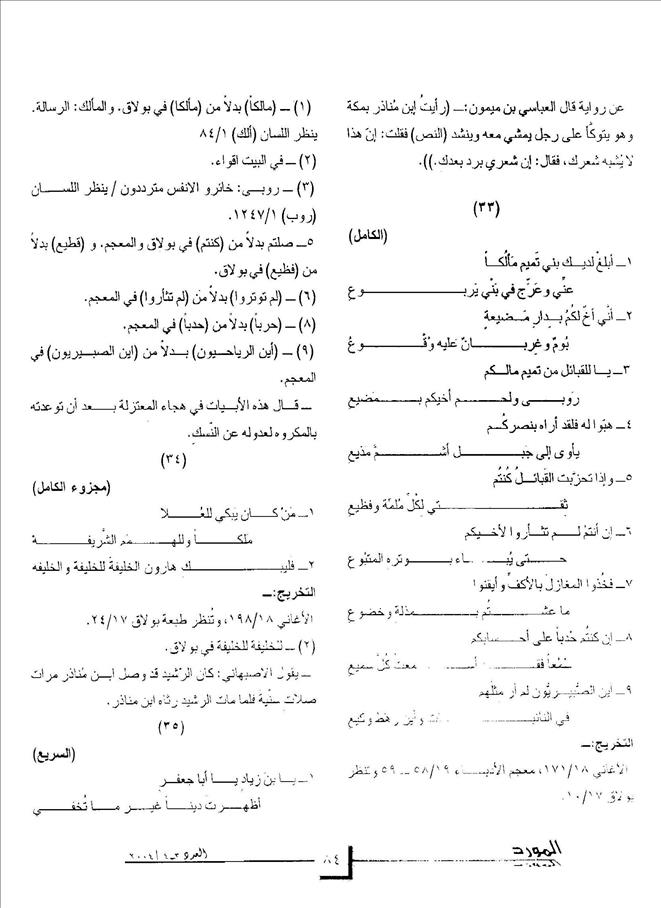 عن رواية قال العباسي بن ميمون:ــ (رأيتُ إبن مُناذر بمكة
وهو يتوكّأ على رجل يمشي معه وينشد (النص) فقلت: إنّ هذا
لا يُشبه شعرك، فقال: إن شعري برد بعدك.)).
(٣٣)
(الكامل)
١ــ أبلغْ لديك بني تَميم مَألُكاً
عنِّي وعَرِّج في بَنْي يَربوعِ
٢ــ أنّي أخٌ لكُمْ بدارِ مَضيعةٍ
بُومٌ وغِربانٌ عليه وُقُوعُ
٣ــ يا للقبائل من تَميم مالكم
رَوبى ولحم أخيكم بمَضيعِ
٤ــ هبّوا له فلقد أراه بنصركُم
يأوى إلى جَبل أشمَّ مذيع
٥ــ وإذا تحزّبت القَبائلُ كُنتُم
ثقتي لكُلِّ مُلمّة وفظيع
٦ــ إن أنتمْ لم تثأروا لأخيكم
حتى يُباء بوتره المتبُوع
٧ــ فخُذوا المغازلَ بالأكفِّ وأيقنوا
ما عشتُم بمذلة وخضوع
٨ــ إن كنتُم حُدباً على أحسابكم
سُمْعاً فقد أسمعتُ كُلّ سميع
٩ــ اين الصُّبيريُّون لم أر مثلَهم
في النائبات وأين رهْط وكيع
التخريج:ــ
الأغاني ١٧١/١٨، معجم الأدباء ٥٨/١٩ ــ ٥٩ وتنظر
بولاق ١٠/١٧.
(١) ــ (مالكاً) بدلاً من (مألكا) في بولاق. والمألك: الرسالة.
ينظر اللسان (ألك) ٨٤/١
(٢) ــ في البيت اقواء.
(٣) ــ روبى: خائرو الانفس مترددون / ينظر اللسان
(روب) ١٢٤٧/١.
٥ــ صلتم بدلاً من (كنتم) في بولاق والمعجم. و (قطيع) بدلاً
من (فظيع) في بولاق.
(٦) ــ (لم توتروا) بدلاً من (لم تثأروا) في المعجم.
(٨) ــ (حرباً) بدلاً من (حدباً) في المعجم.
(٩) ــ (أين الرياحيون) بدلاً من (اين الصبيريون) في
المعجم.
ــ قال هذه الأبيات في هجاء المعتزلة بعد أن توعدته
بالمكروه لعدوله عن النّسك.
(٣٤)
(مجزوء الكامل)
١ــ مَنْ كان يَبكي للعُلا
ملكاً وللهمَم الشَّريفة
٢ــ فليبك هارون الخليفةَ للخليفة والخليفه
التخريج:ــ
الأغاني ١٩٨/١٨، وتُنظر طبعة بولاق ٢٤/١٧.
(٢) ــ للخليفة للخليفة في بولاق.
ــ يقول الاصبهاني: كان الرّشيد قد وصل ابن مُناذر مرات
صلات سنّية فلما مات الرشيد رثاه ابن مناذر.
(٣٥)
(السريع)
١ــ يا بن زياد يا أبا جعفرٍ
أظهرت ديناً غير ما تُخفي
المورد
٨٤
العدد ٣ــ٤ / ٢٠٠٤